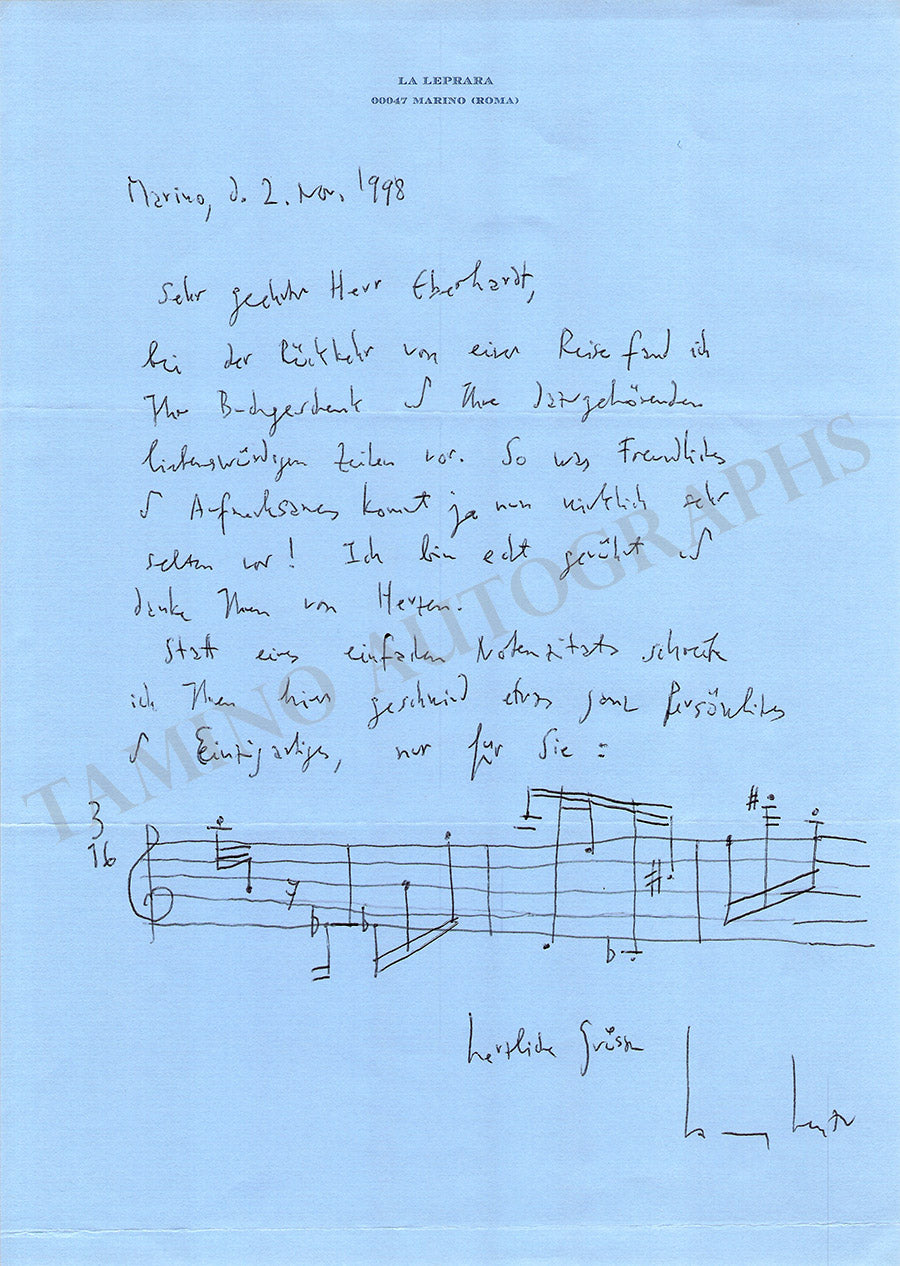 LA LEPRARA
00047 MARINO (ROMA)
Marino, d. 2. Nov. 1998
Sehr geehrter Herr Eberhardt,
bei der Rückkehr von einer Reise fand ich
Ihr Buchgeschenk & Ihre dazugehörenden
liebenswürdigen Zeilen vor. So was Freundliches
& Aufmerksames kommt ja nun wirklich sehr
selten vor! Ich bin echt gerührt &
danke Ihnen von Herzen.
Statt eines einfachen Notenzitats schreibe
ich Ihnen hier geschwind etwas ganz Persönliches
& Einzigartiges, nur für Sie :
3
16
herzliche Grüsse
TAMINO AUTOGRAPHS